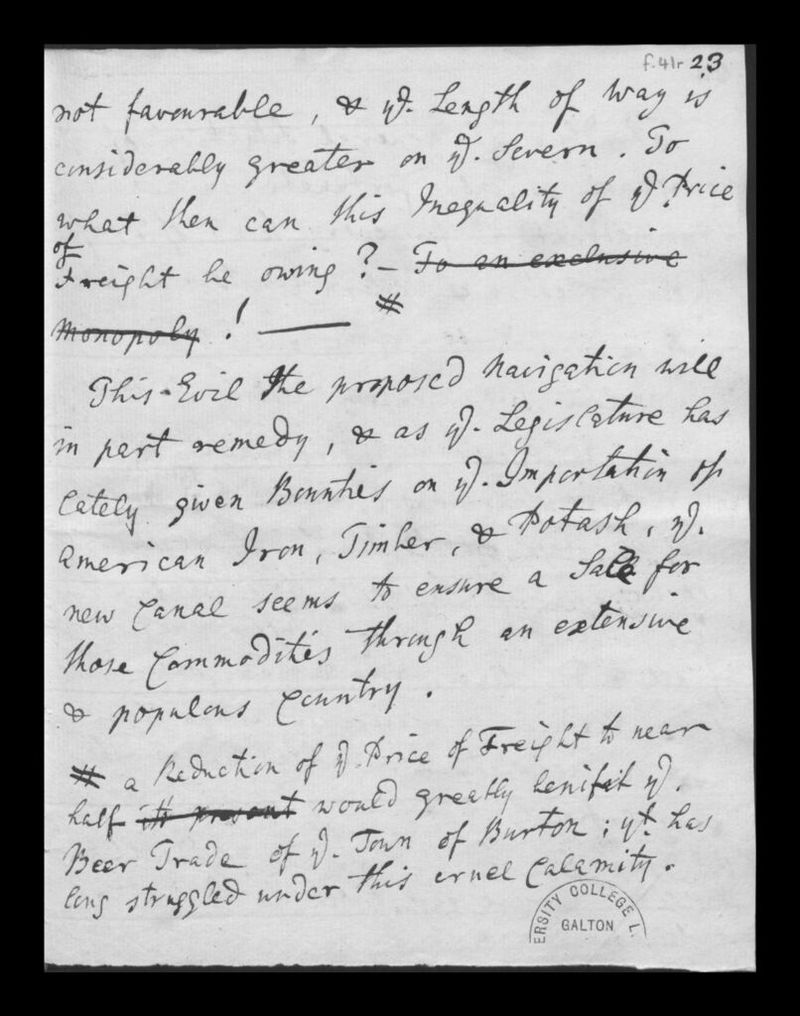 f.41r 23
not favourable, & ye. Length of Way is
considerably greater on ye. Severn. To
what then can this Inequality of ye Price
of
Freight be owing? – To an exclusive
#
Monopoly! —
This Evil the proposed Navigation will
in part remedy, & as ye. Legislature has
lately given Bounties on ye. Importation of
American Iron, Timber, & Potash, ye.
new Canal seems to ensure a Sale for
those Commodities through an extensive
& populous Country.
# a Reduction of ye Price of Freight to near
half its present would greatly benifit ye.
Beer Trade of ye. Town of Burton; yt. has
long struggled under this cruel Calamity.
ERSITY COLLEGE L.
GALTON